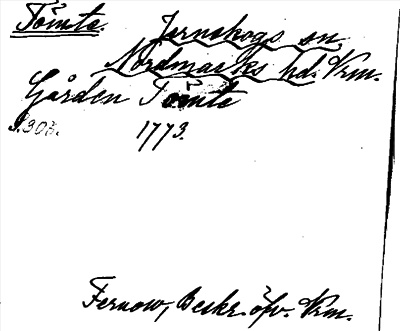 Tömte. Jernskogs sn
Nordmarks hd. Vrm.
Gården Tömte
S. 303. 1773.
Fernow, Beskr. öfv. Vrm.